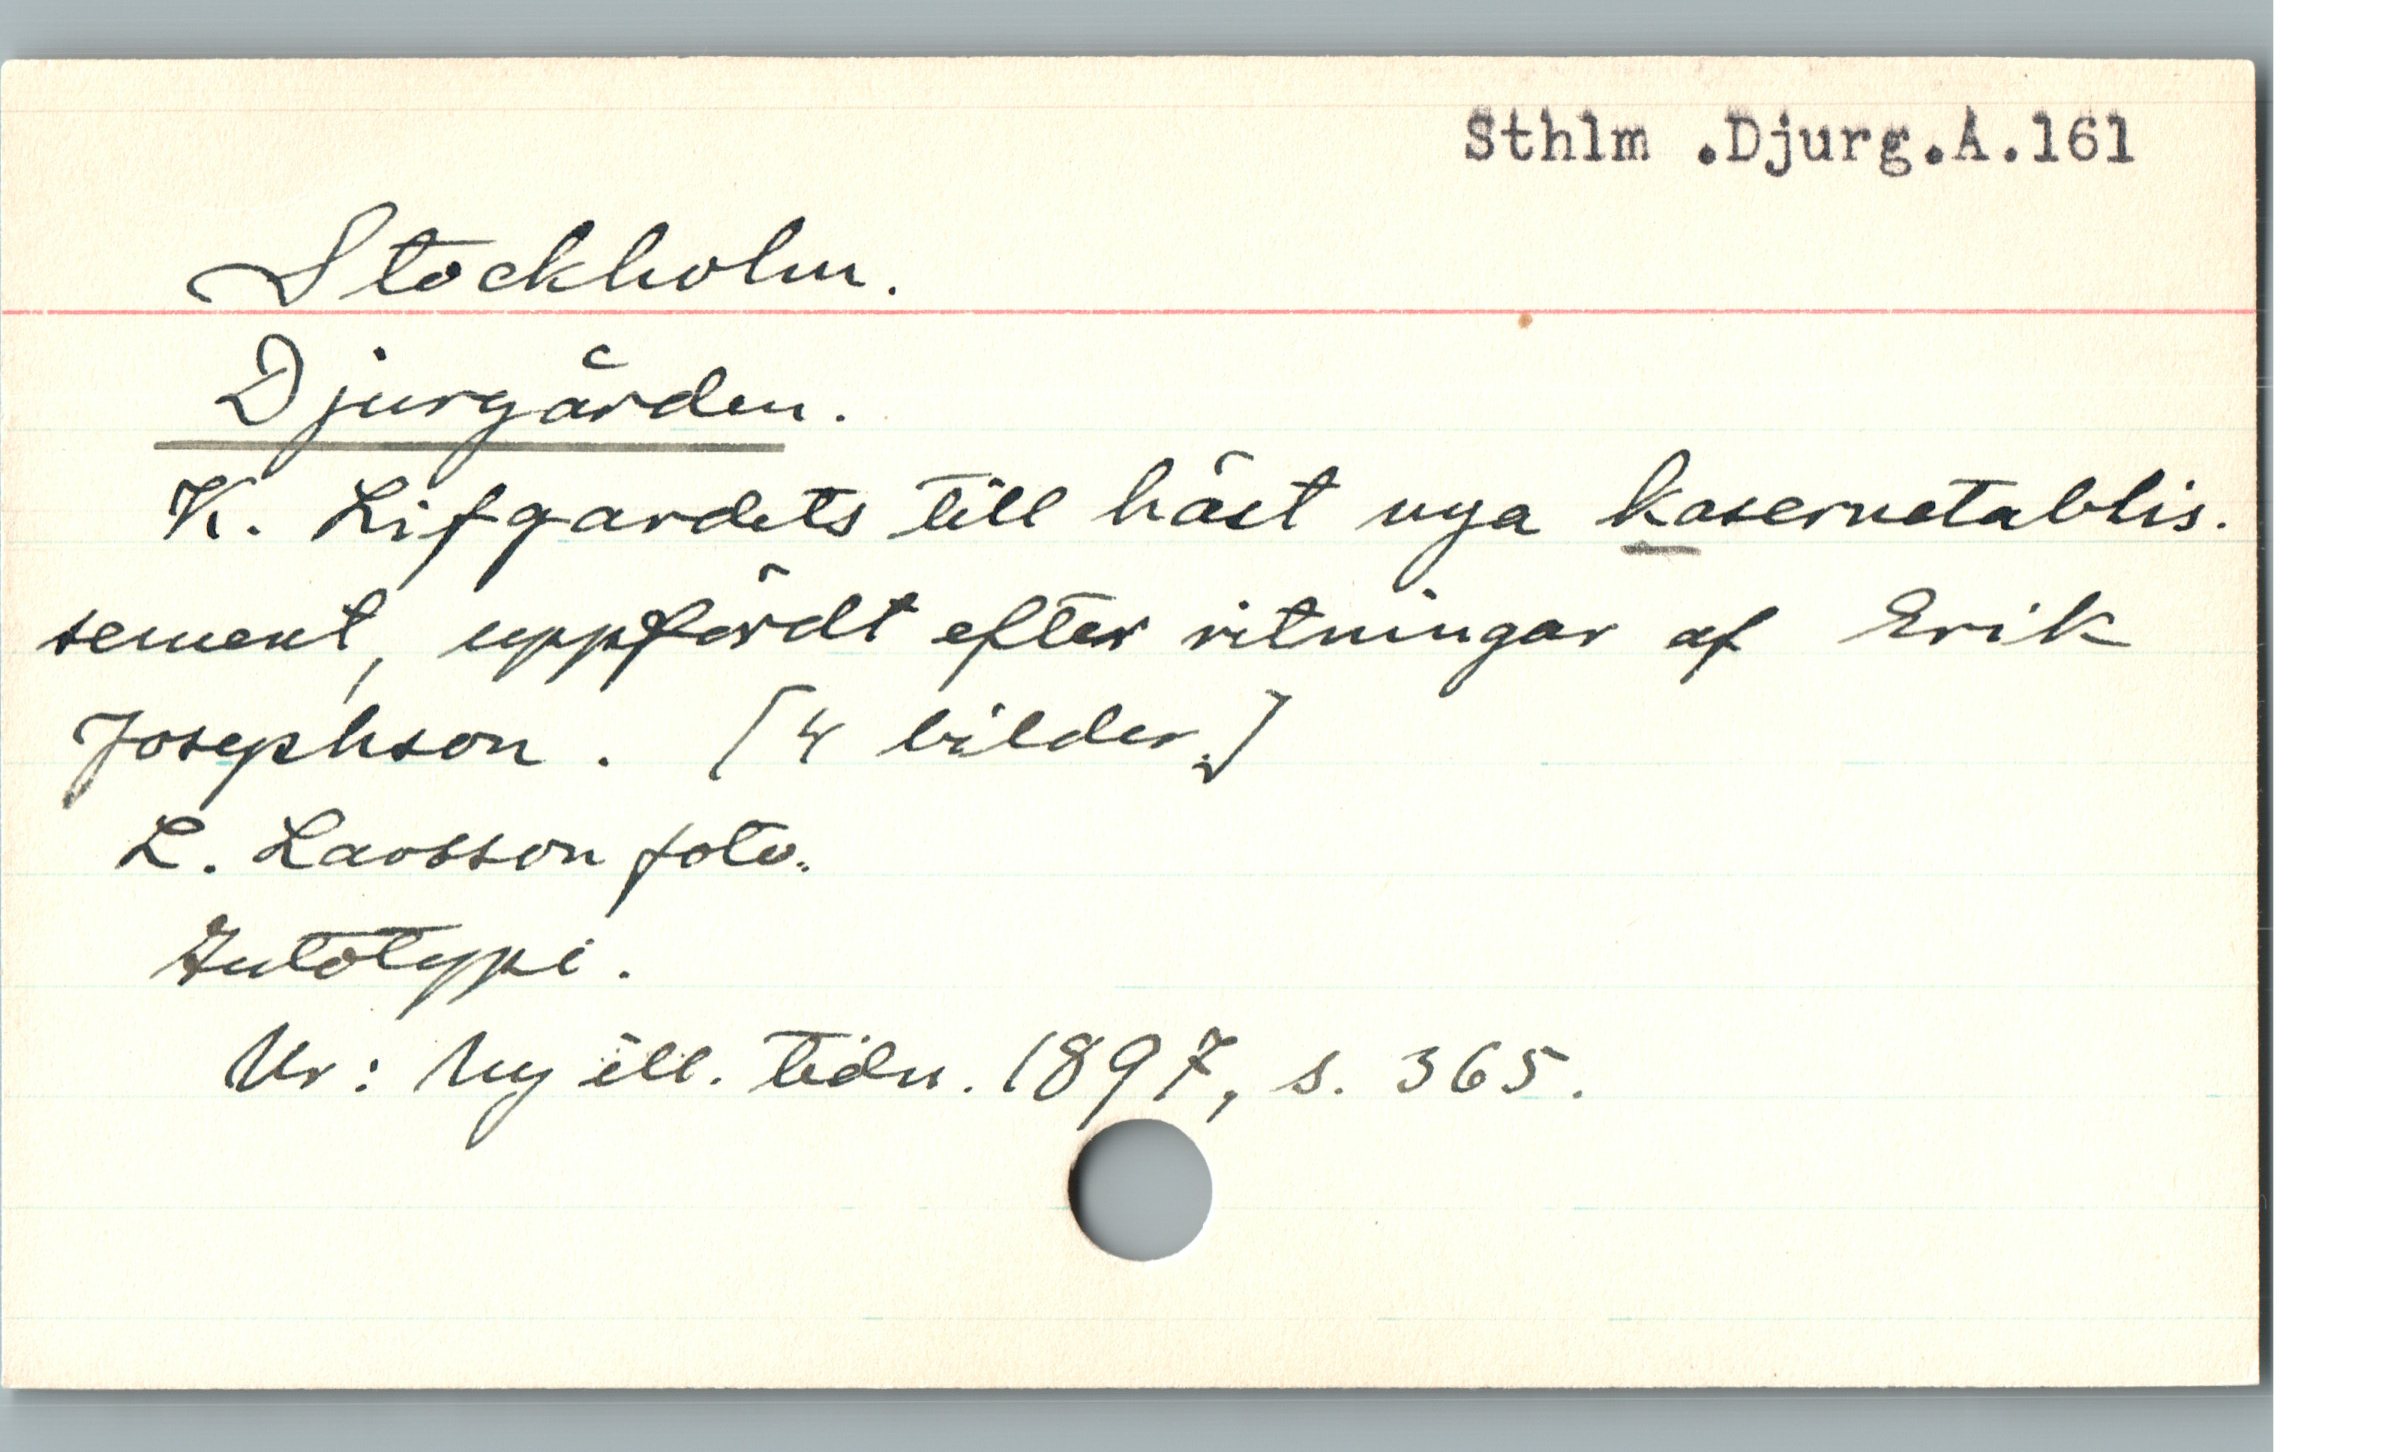 Sthlm .Djurg.A.161
Stockholm.
Djurgården.
K. Lifgardets till häst nya kasernetablis.
sement, uppfördt efter ritningar af Erik
Josephson. [4 bilder.]
L. Larsson foto.
Autotypi.
Ur: Ny ill. tidn. 1897, s. 365.